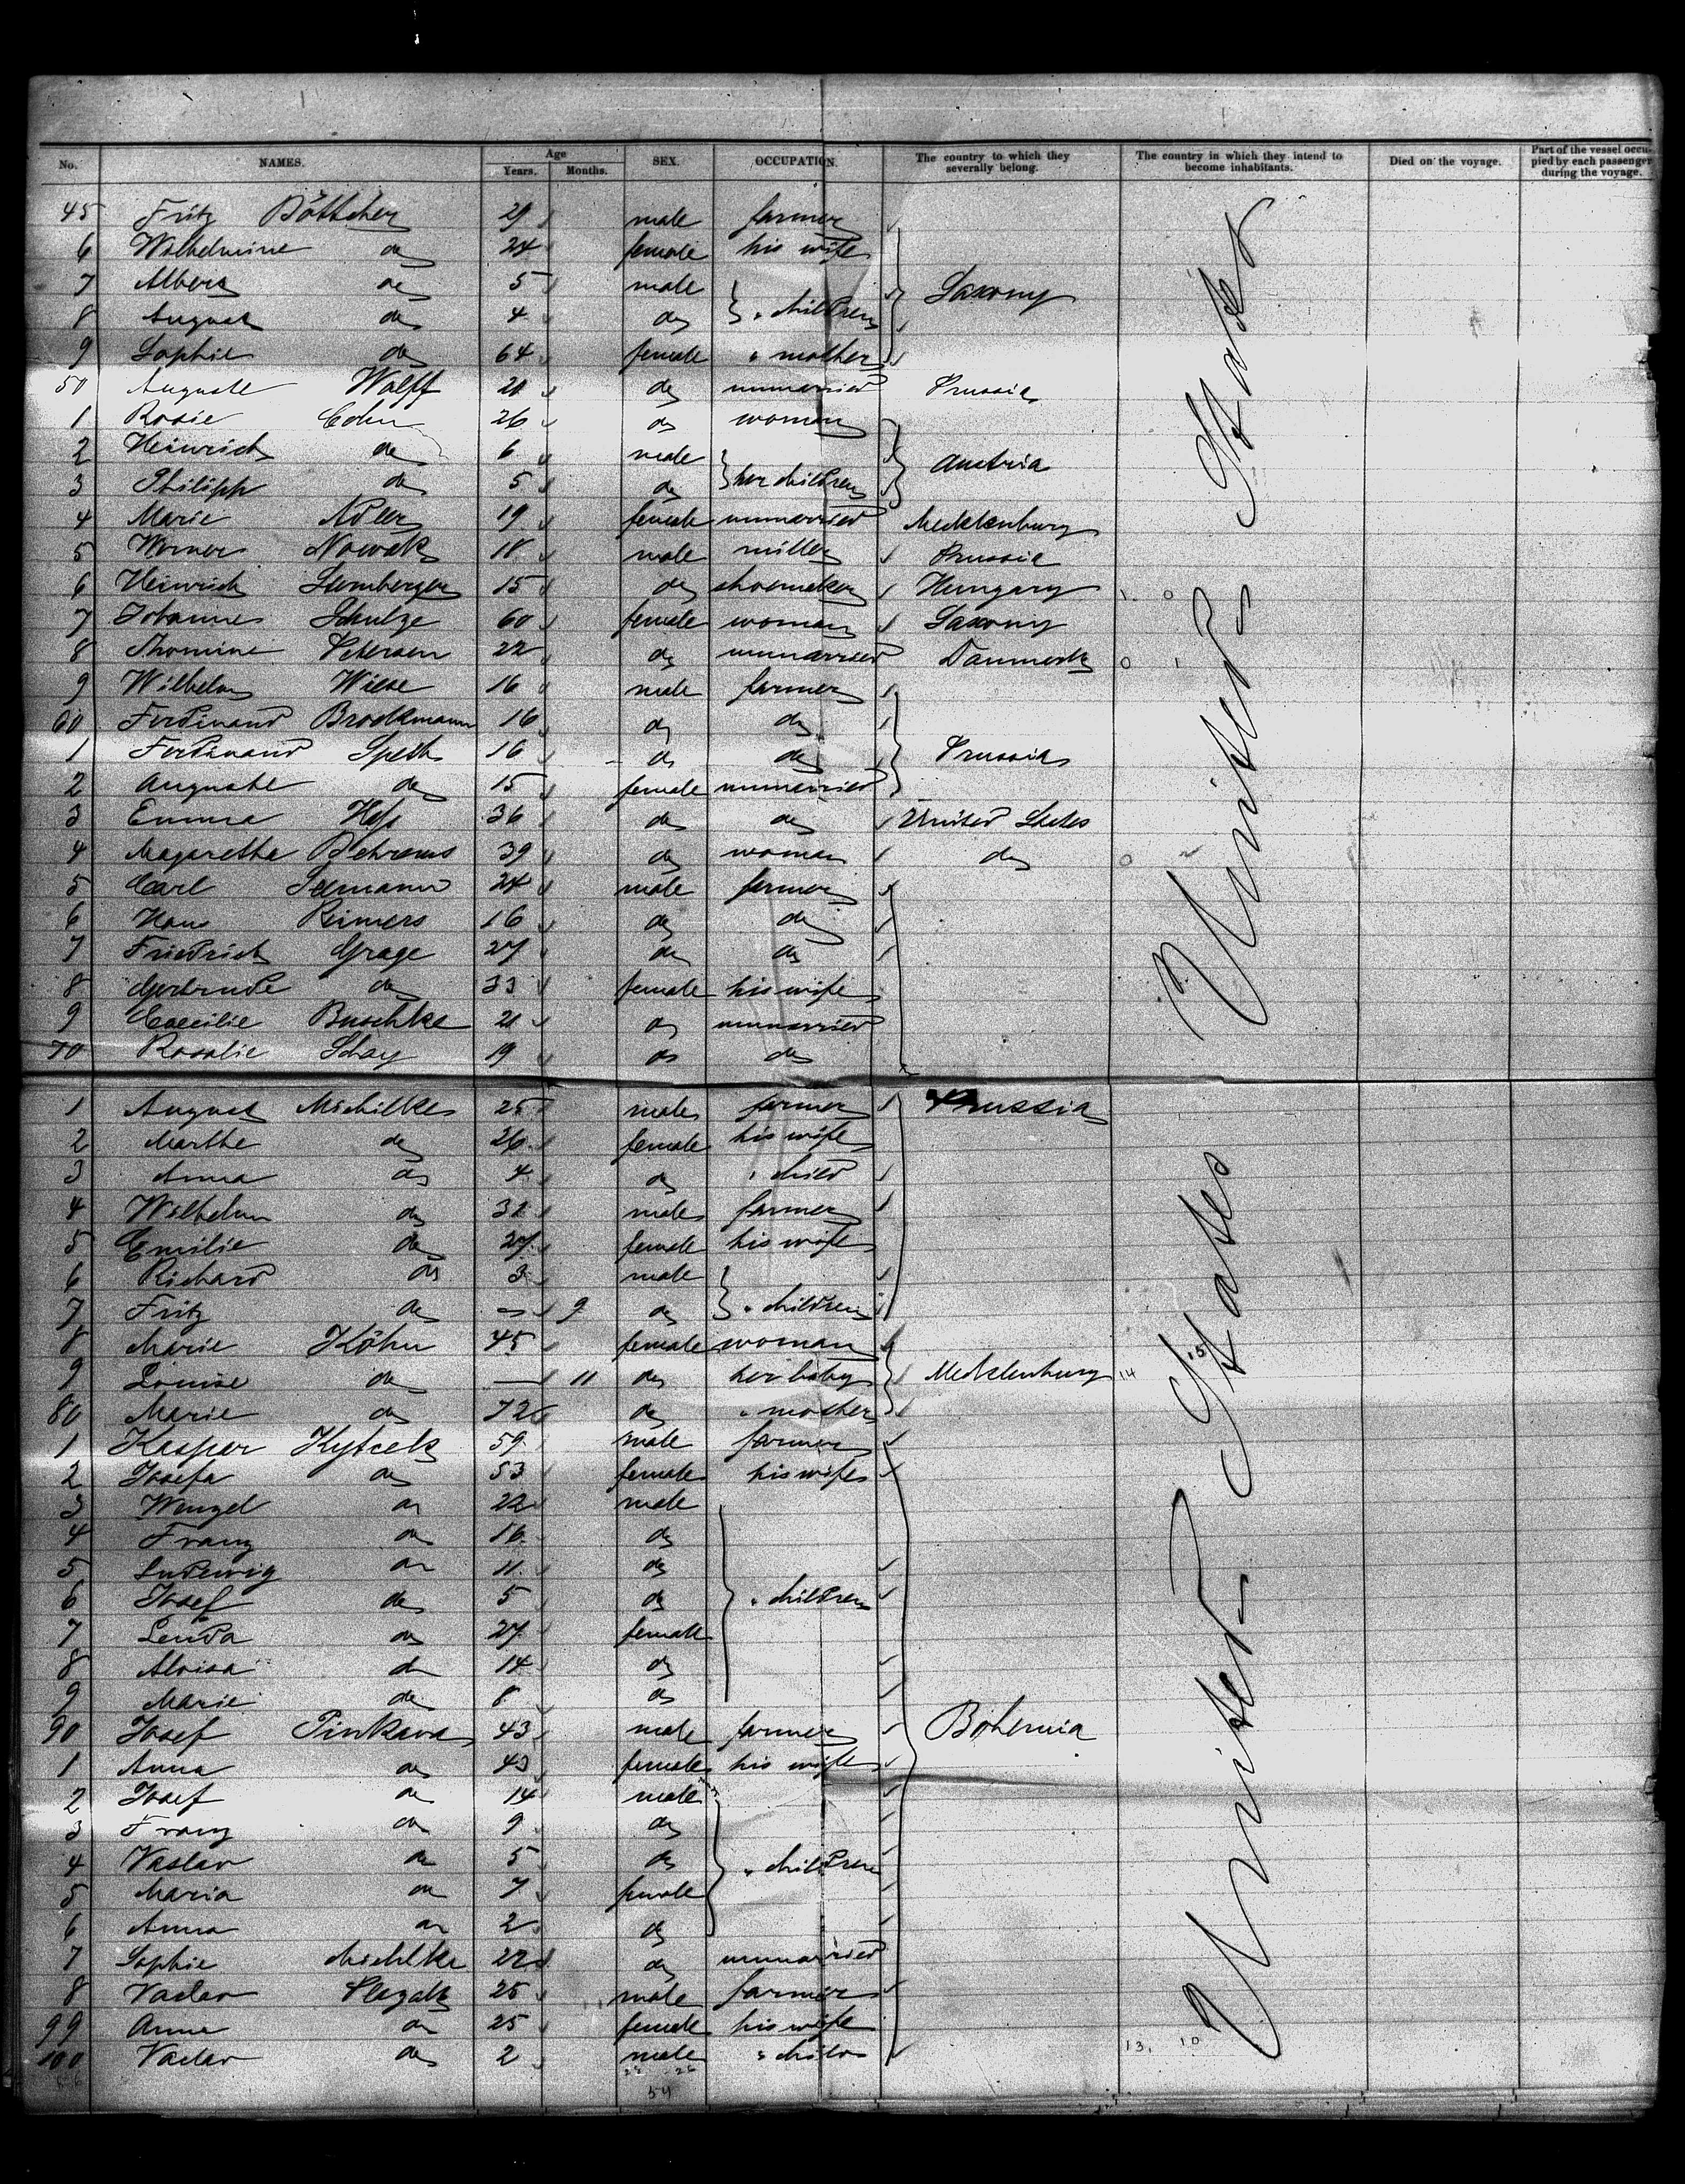 No. NAMES. Age Years. Months. SEX. OCCUPATION. The country to which they severally belong. The country in which they intend to become inhabitants. Died on the voyage. Part of the vessel occupied by each passenger during the voyage.
45 Fritz Böttcher 29 male farmer
6 Wilhelmine do 24 female his wife
7 Albert do 5 male Saxony
8 August do 4 do " children
9 Sophie do 64 female " mother
50 Auguste Wolff 21 do unmarried Prussia
1 Rosie Cohn 26 do woman
2 Heinrich do 6 male Austria
3 Philipp do 5 do her children
4 Marie Adler 19 female unmarried Mecklenburg
5 Werner Nowak 18 male miller Prussia
6 Heinrich 15 do shoemaker Hungary
7 Johanne Schulze 60 female woman Saxony
8 Thomine Petersen 22 do unmarried Danmark
9 Wilhelm Wiese 16 male farmer
60 Ferdinand Brockmann 16 do do
1 Ferdinand Speth 16 do do Prussia
2 Auguste do 15 female unmarried
3 Emma Heß 36 do do United States
4 Magaretha Behrens 39 do woman do
5 Carl 24 male farmer
6 Hans Reimers 16 do do
7 Friedrich Grage 27 do do
8 Gertrude do 33 female his wife
9 Caecilie Buschke 21 do unmarried
70 Rosalie Schay 19 do do
United States
1 August Michilke 25 male farmer Prussia
2 Marthe do 26 female his wife
3 Anna do 4 do " child
4 Wilhelm do 32 male farmer
5 Emilie do 27 female his wife
6 Richard do 3 male
7 Fritz do — 9 do " children
8 Marie Köhn 45 female woman
9 Louise do — 11 do her baby Mecklenburg 14 15
80 Marie do 72 do " mother
1 Kasper Kytcek 59 male farmer
2 Josefa do 53 female his wife
3 Wenzel do 22 male
4 Franz do 16 do
5 Ludewig do 11 do
6 Josef do 5 do " children
7 do 27 female
8 Aloisa do 14 do
9 Marie do 8 do
90 Josef Pinkava 43 male farmer Bohemia
1 Anna do 43 female his wife
2 Josef do 14 male
3 Franz do 9 do
4 Vaslav do 5 do " children
5 Maria do 7 female
6 Anna do 2 do
7 Sophie Michilke 22 do unmarried
8 Vaclav 25 male farmer
99 Anna do 25 female his wife
100 Vaclav do 2 male " child 13. 10
United States
54